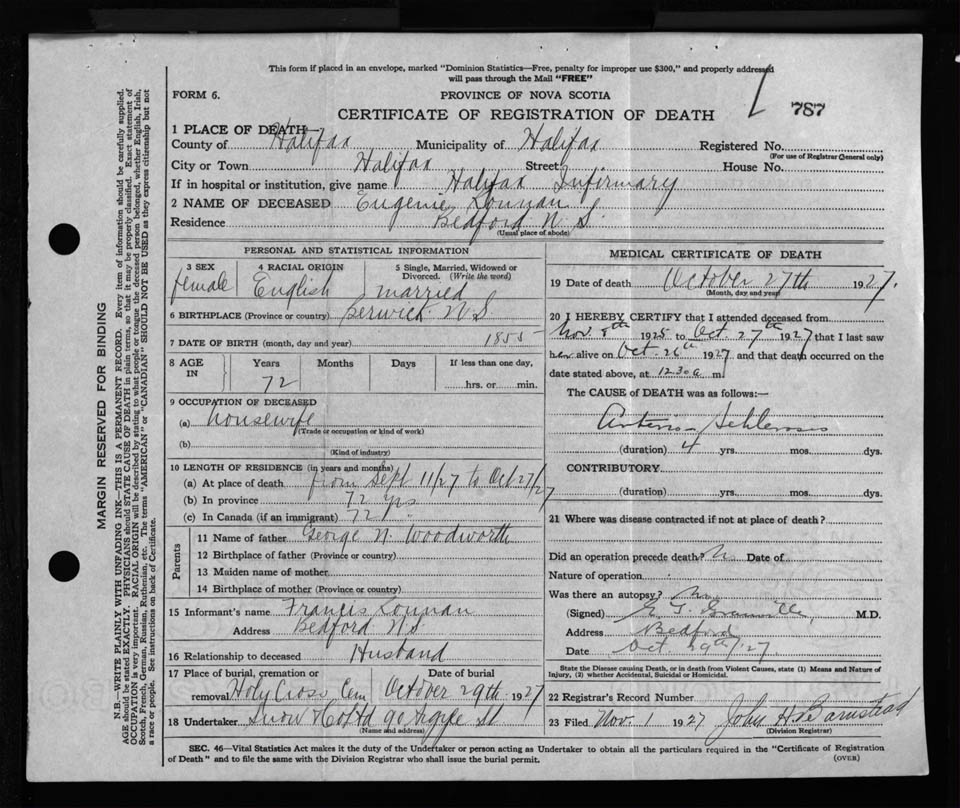 This form if placed in an envelope, marked "Dominion Statistics—Free, penalty for improper use $300," and properly addressed
will pass through the Mail "FREE"
FORM 6.
PROVINCE OF NOVA SCOTIA
787
CERTIFICATE OF REGISTRATION OF DEATH
1 PLACE OF DEATH—
County of Halifax Municipality of Halifax Registered No.
(For use of Registrar General only)
City or Town Halifax Street House No.
If in hospital or institution, give name Halifax Infirmary
2 NAME OF DECEASED Eugenie
Residence Bedford N.S.
(Usual place of abode)
PERSONAL AND STATISTICAL INFORMATION
3 SEX 4 RACIAL ORIGIN 5 Single, Married, Widowed or Divorced. (Write the word)
female English married
6 BIRTHPLACE (Province or country) Berwick N.S.
7 DATE OF BIRTH (month, day and year) 1855
8 AGE IN Years Months Days If less than one day,
72 hrs. or min.
9 OCCUPATION OF DECEASED
(a) housewife
(Trade or occupation or kind of work)
(b)
(Kind of industry)
10 LENGTH OF RESIDENCE (in years and months)
(a) At place of death from Sept 11/27 to Oct 27/27
(b) In province 72 yrs
(c) In Canada (if an immigrant) 72 yrs
Parents
11 Name of father George N. Woodworth
12 Birthplace of father (Province or country)
13 Maiden name of mother
14 Birthplace of mother (Province or country)
15 Informant's name Francis
Address Bedford N.S.
16 Relationship to deceased Husband
17 Place of burial, cremation or removal Holy Cross Cem Date of burial October 29th 1927
18 Undertaker Snow & Co Ltd 90 Argyle St
(Name and address)
MEDICAL CERTIFICATE OF DEATH
19 Date of death October 27th 1927.
(Month, day and year)
20 I HEREBY CERTIFY that I attended deceased from
Nov. 8th 1925 to Oct. 27th 1927 that I last saw
her alive on Oct. 26th 1927 and that death occurred on the
date stated above, at 12.30 a m.
The CAUSE of DEATH was as follows:—
Arterio Schlerosis
(duration) 4 yrs. mos. dys.
CONTRIBUTORY
(duration) yrs. mos. dys.
21 Where was disease contracted if not at place of death?
Did an operation precede death? No Date of
Nature of operation
Was there an autopsy? No
(Signed) M.D.
Address Bedford
Date Oct 29th/27
State the Disease causing Death, or in death from Violent Causes, state (1) Means and Nature of
Injury, (2) whether Accidental, Suicidal or Homicidal.
22 Registrar's Record Number
23 Filed Nov. 1 1927 John H. Barnstead
(Division Registrar)
SEC. 46—Vital Statistics Act makes it the duty of the Undertaker or person acting as Undertaker to obtain all the particulars required in the "Certificate of Registration
of Death" and to file the same with the Division Registrar who shall issue the burial permit.
(OVER)
MARGIN RESERVED FOR BINDING
N.B.—WRITE PLAINLY, WITH UNFADING INK—THIS IS A PERMANENT RECORD. Every item of information should be carefully supplied.
AGE should be stated EXACTLY. PHYSICIANS should STATE CAUSE OF DEATH in plain terms, so that it may be properly classified. Exact statement of
OCCUPATION is very important. RACIAL ORIGIN will be described by stating to what people or tongue the deceased person belonged, whether English, Irish,
Scotch, French, German, Russian, Ruthenian, etc. The terms "AMERICAN" or "CANADIAN" SHOULD NOT BE USED as they express citizenship but not
a race or people. See instructions on back of Certificate.